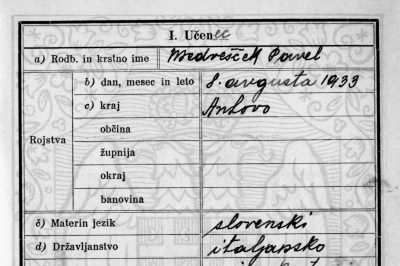 I. Učenec
a) Rodb. in krstno ime Medvešček Pavel
b) dan, mesec in leto 8. avgusta 1933
Rojstva
c) kraj Anhovo
občina
župnija
okraj
banovina
č) Materin jezik slovenski
d) Državljanstvo italjansko